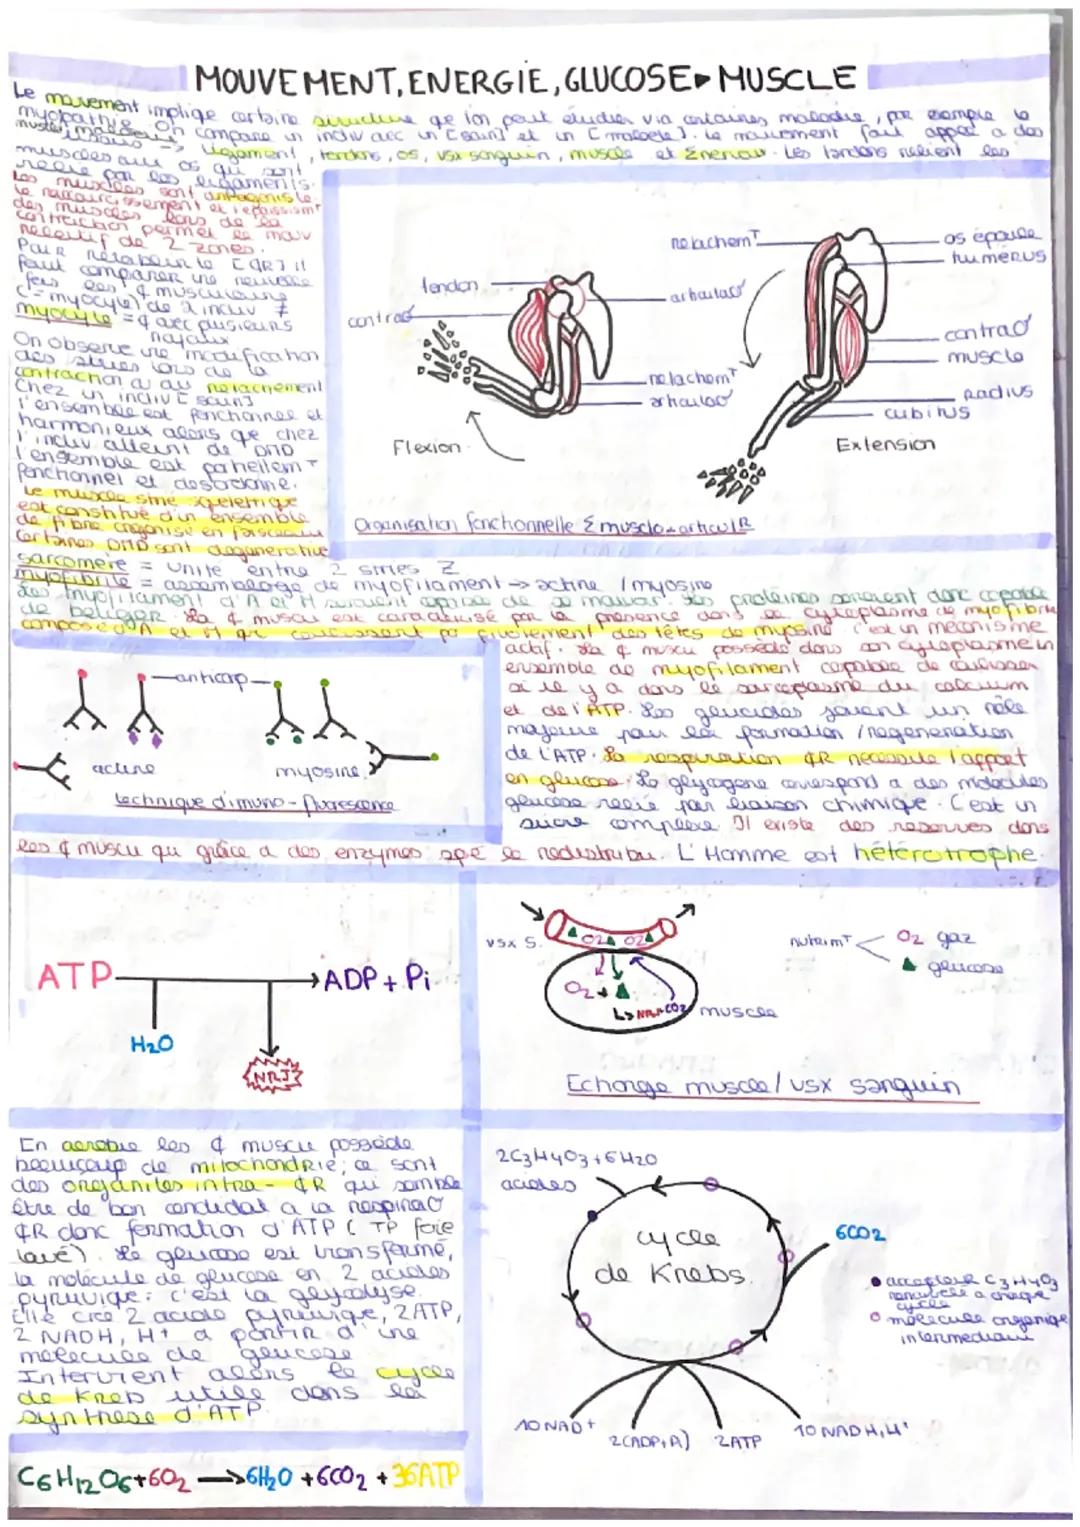 MOUVEMENT, ENERGIE, GLUCOSE ▸ MUSCLE
Le mouvement implique certaine structure que l'on peut étudier via certaines maladie, par exemple la
myopathie. On compare un indiv avec un [sain] et un [malade]. Le mouvement fait appel a des
ligament, tendons, os, vsx sanguin, muscle et Σ nerveux. Les tendons relient les
muscles aux os qui sont
relié par les ligaments.
Les muscles sont antagoniste.
Le raccourcissement et épaississmt
des muscles lors de la
contraction permet le mouv
relatif de 2 zones.
Pour il
faut comparer une nouvelle
fois les ¢ musculaire
(=myocyte) de 2 indiv ≠
myocyte = ¢ avec plusieurs
noyaux
On observe une modification
des stries lors de la
contraction ou au relachement
Chez un indiv [sain]
l'ensemble est fonctionnel et
harmonieux alors que chez
l'indiv atteint de DMD
l'ensemble est partiellemt
fonctionnel et desordonné.
Le muscle strié squelettique
est constitué d'un ensemble
de fibre organisé en faisceaux
Certaines DMD sont degenerative
tendon
contraco
relachemT
articulaco
relachemT
articulaco
os épaule
humerus
contraco
muscle
radius
cubitus
Flexion
Extension
Organisation fonctionnelle Σ musculo-articulR
sarcomère = unité entre 2 stries Z
myofibrile = assemblage de myofilament → actine / myosine
Les myofilament d'A et M seraient de se mouvoir. Les protéines seraient donc capable
de bouger. La ¢ muscu est caractérisé par la présence dans le cytoplasme de myofibrile
composé d'A et M qui coulissent par pivotement des têtes de myosine. C'est un mécanisme
actif. La ¢ muscu possède dans son cytoplasme un
ensemble de myofilament capable de coulisser
si il y a dans le sarcoplasme du calcium
et de l'ATP. Les glucides jouent un rôle
majeur pour la formation / régénération
de l'ATP. La respiration ¢R nécessite l'apport
en glucose. Le glycogène correspond a des molécules
glucose relié par liaison chimique. C'est un
sucre complexe. Il existe des reserves dans
les ¢ muscu qui grâce a des enzymes spé le redistribu. L'Homme est hétérotrophe.
anticorp
actine
myosine
technique d'immuno-fluorescence
ATP → ADP + Pi
H2O
NRJ
vsx s.
O2 O2
O2 +
NRJ+CO2
muscle
nutrimT
O2 gaz
glucose
Echange muscle / vsx sanguin
En aerobie les ¢ muscu possède
beaucoup de mitochondrie; ce sont
des organites intra-¢R qui semble
être de bon candidat a la respiraco
¢R donc formation d'ATP (TP foie
lavé). Le glucose est transformé,
la molécule de glucose en 2 acides
pyruvique: c'est la glycolyse.
Elle crée 2 acide pyruvique, 2ATP,
2 NADH, H+ a partir d'une
molecule de glucose
Intervient alors le cycle
de Kreb utile dans la
synthese d'ATP.
C6H12O6 + 6O2 → 6H2O + 6CO2 + 36ATP
2C3H4O3 + 6H2O
acides
cycle
de Krebs
6CO2
accepteur C3H4O3
renouvelé a chaque
cycle
molecule organique
intermediaire
10 NAD+
2(ADP+Pi)
2ATP
10 NADH, H+